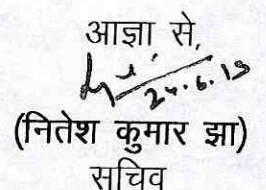 आज्ञा से,
24.6.19
(नितेश कुमार झा)
सचिव